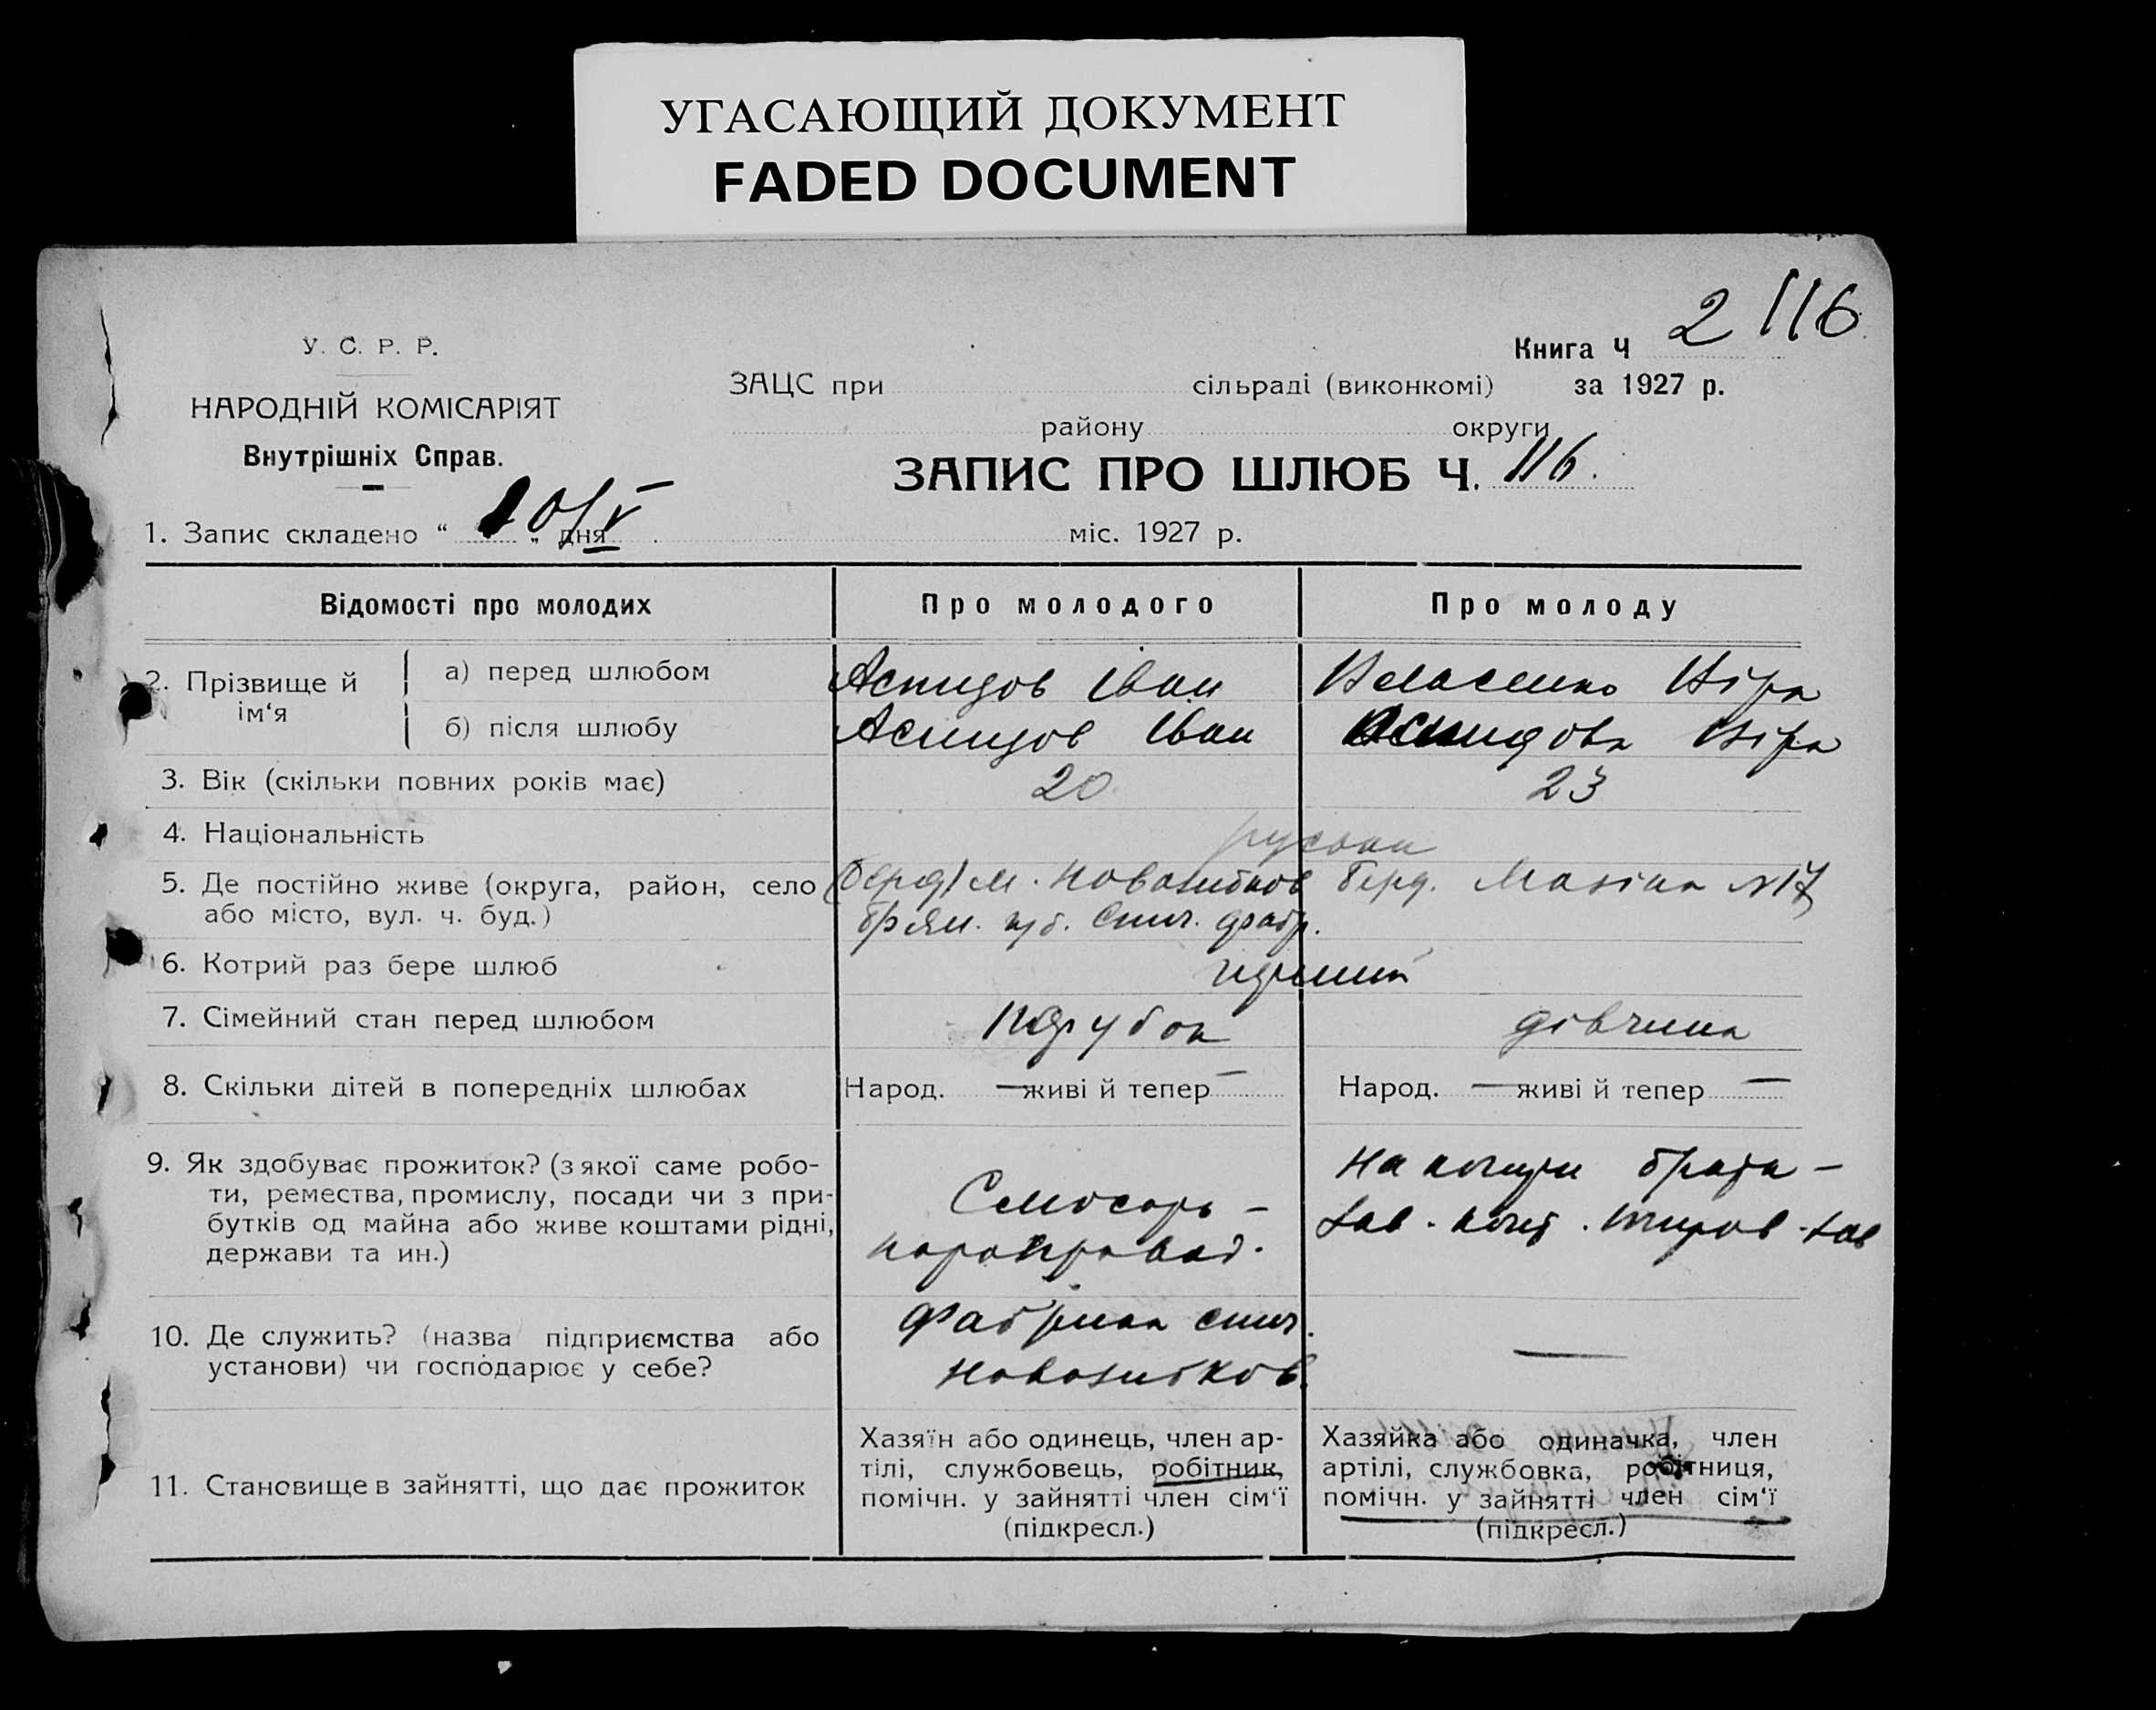 УГАСАЮЩИЙ ДОКУМЕНТ
FADED DOCUMENT
2 116
У. С. Р. Р.
Книга Ч
ЗАЦС при сільраді (виконкомі) за 1927 р.
НАРОДНІЙ КОМІСАРІЯТ
району округи
Внутрішніх Справ.
ЗАПИС ПРО ШЛЮБ Ч. 116.
1. Запис складено “ 10/V „ дня міс. 1927 р.
Відомості про молодих Про молодого Про молоду
2. Прізвище й ім‘я
а) перед шлюбом Аспидов Іван Власенко Віра
б) після шлюбу Аспидов Іван Аспидова Віра
3. Вік (скільки повних років має) 20 23
4. Національність
5. Де постійно живе (округа, район, село
або місто, вул. ч. буд.)
(Берд) м. Новозибков
Брян. губ. Спич. фабр.
Берд. №17
6. Котрий раз бере шлюб перший
7. Сімейний стан перед шлюбом парубок дівчина
8. Скільки дітей в попередніх шлюбах Народ. — живі й тепер — Народ. — живі й тепер —
9. Як здобуває прожиток? (з якої саме робо-
ти, ремества, промислу, посади чи з при-
бутків од майна або живе коштами рідні,
держави та ин.)
Слюсарь -
На кошти брата -
10. Де служить? (назва підприємства або
установи) чи господарює у себе?
Фабрика спич.
Новозибков.
—
11. Становище в зайнятті, що дає прожиток
Хазяїн або одинець, член ар-
тілі, службовець, робітник,
помічн. у зайнятті член сім‘ї
(підкресл.)
Хазяйка або одиначка, член
артілі, службовка, робітниця,
помічн. у зайнятті член сім‘ї
(підкресл.)